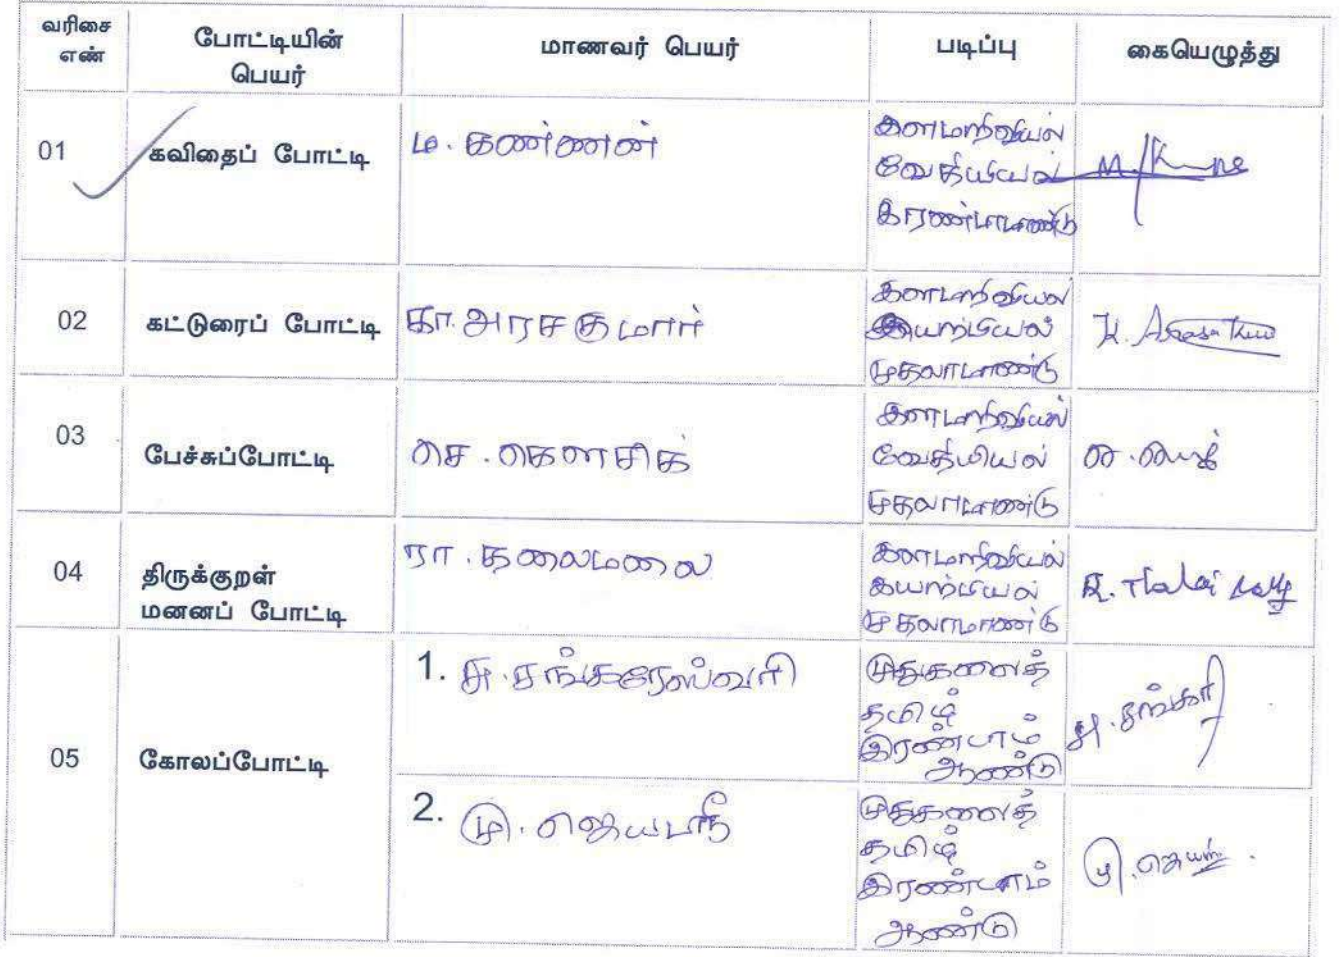 வரிசை எண்
போட்டியின் பெயர்
மாணவர் பெயர்
படிப்பு
கையெழுத்து
01
கவிதைப் போட்டி
ம. கண்ணன்
இளமறிவியல்
வேதியியல்
இரண்டாமாண்டு
02
கட்டுரைப் போட்டி
கா. அரசகுமார்
இளமறிவியல்
இயற்பியல்
முதலாமாண்டு
03
பேச்சுப்போட்டி
செ. கௌசிக்
இளமறிவியல்
வேதியியல்
முதலாமாண்டு
04
திருக்குறள்
மனனப் போட்டி
ரா. தலைமலை
இளமறிவியல்
இயற்பியல்
முதலாமாண்டு
05
கோலப்போட்டி
1. சு. சங்கரேஸ்வரி
முதுகலைத்
தமிழ்
இரண்டாம்
ஆண்டு
சு. சங்கரி
2. மு. ஜெயஸ்ரீ
முதுகலைத்
தமிழ்
இரண்டாம்
ஆண்டு